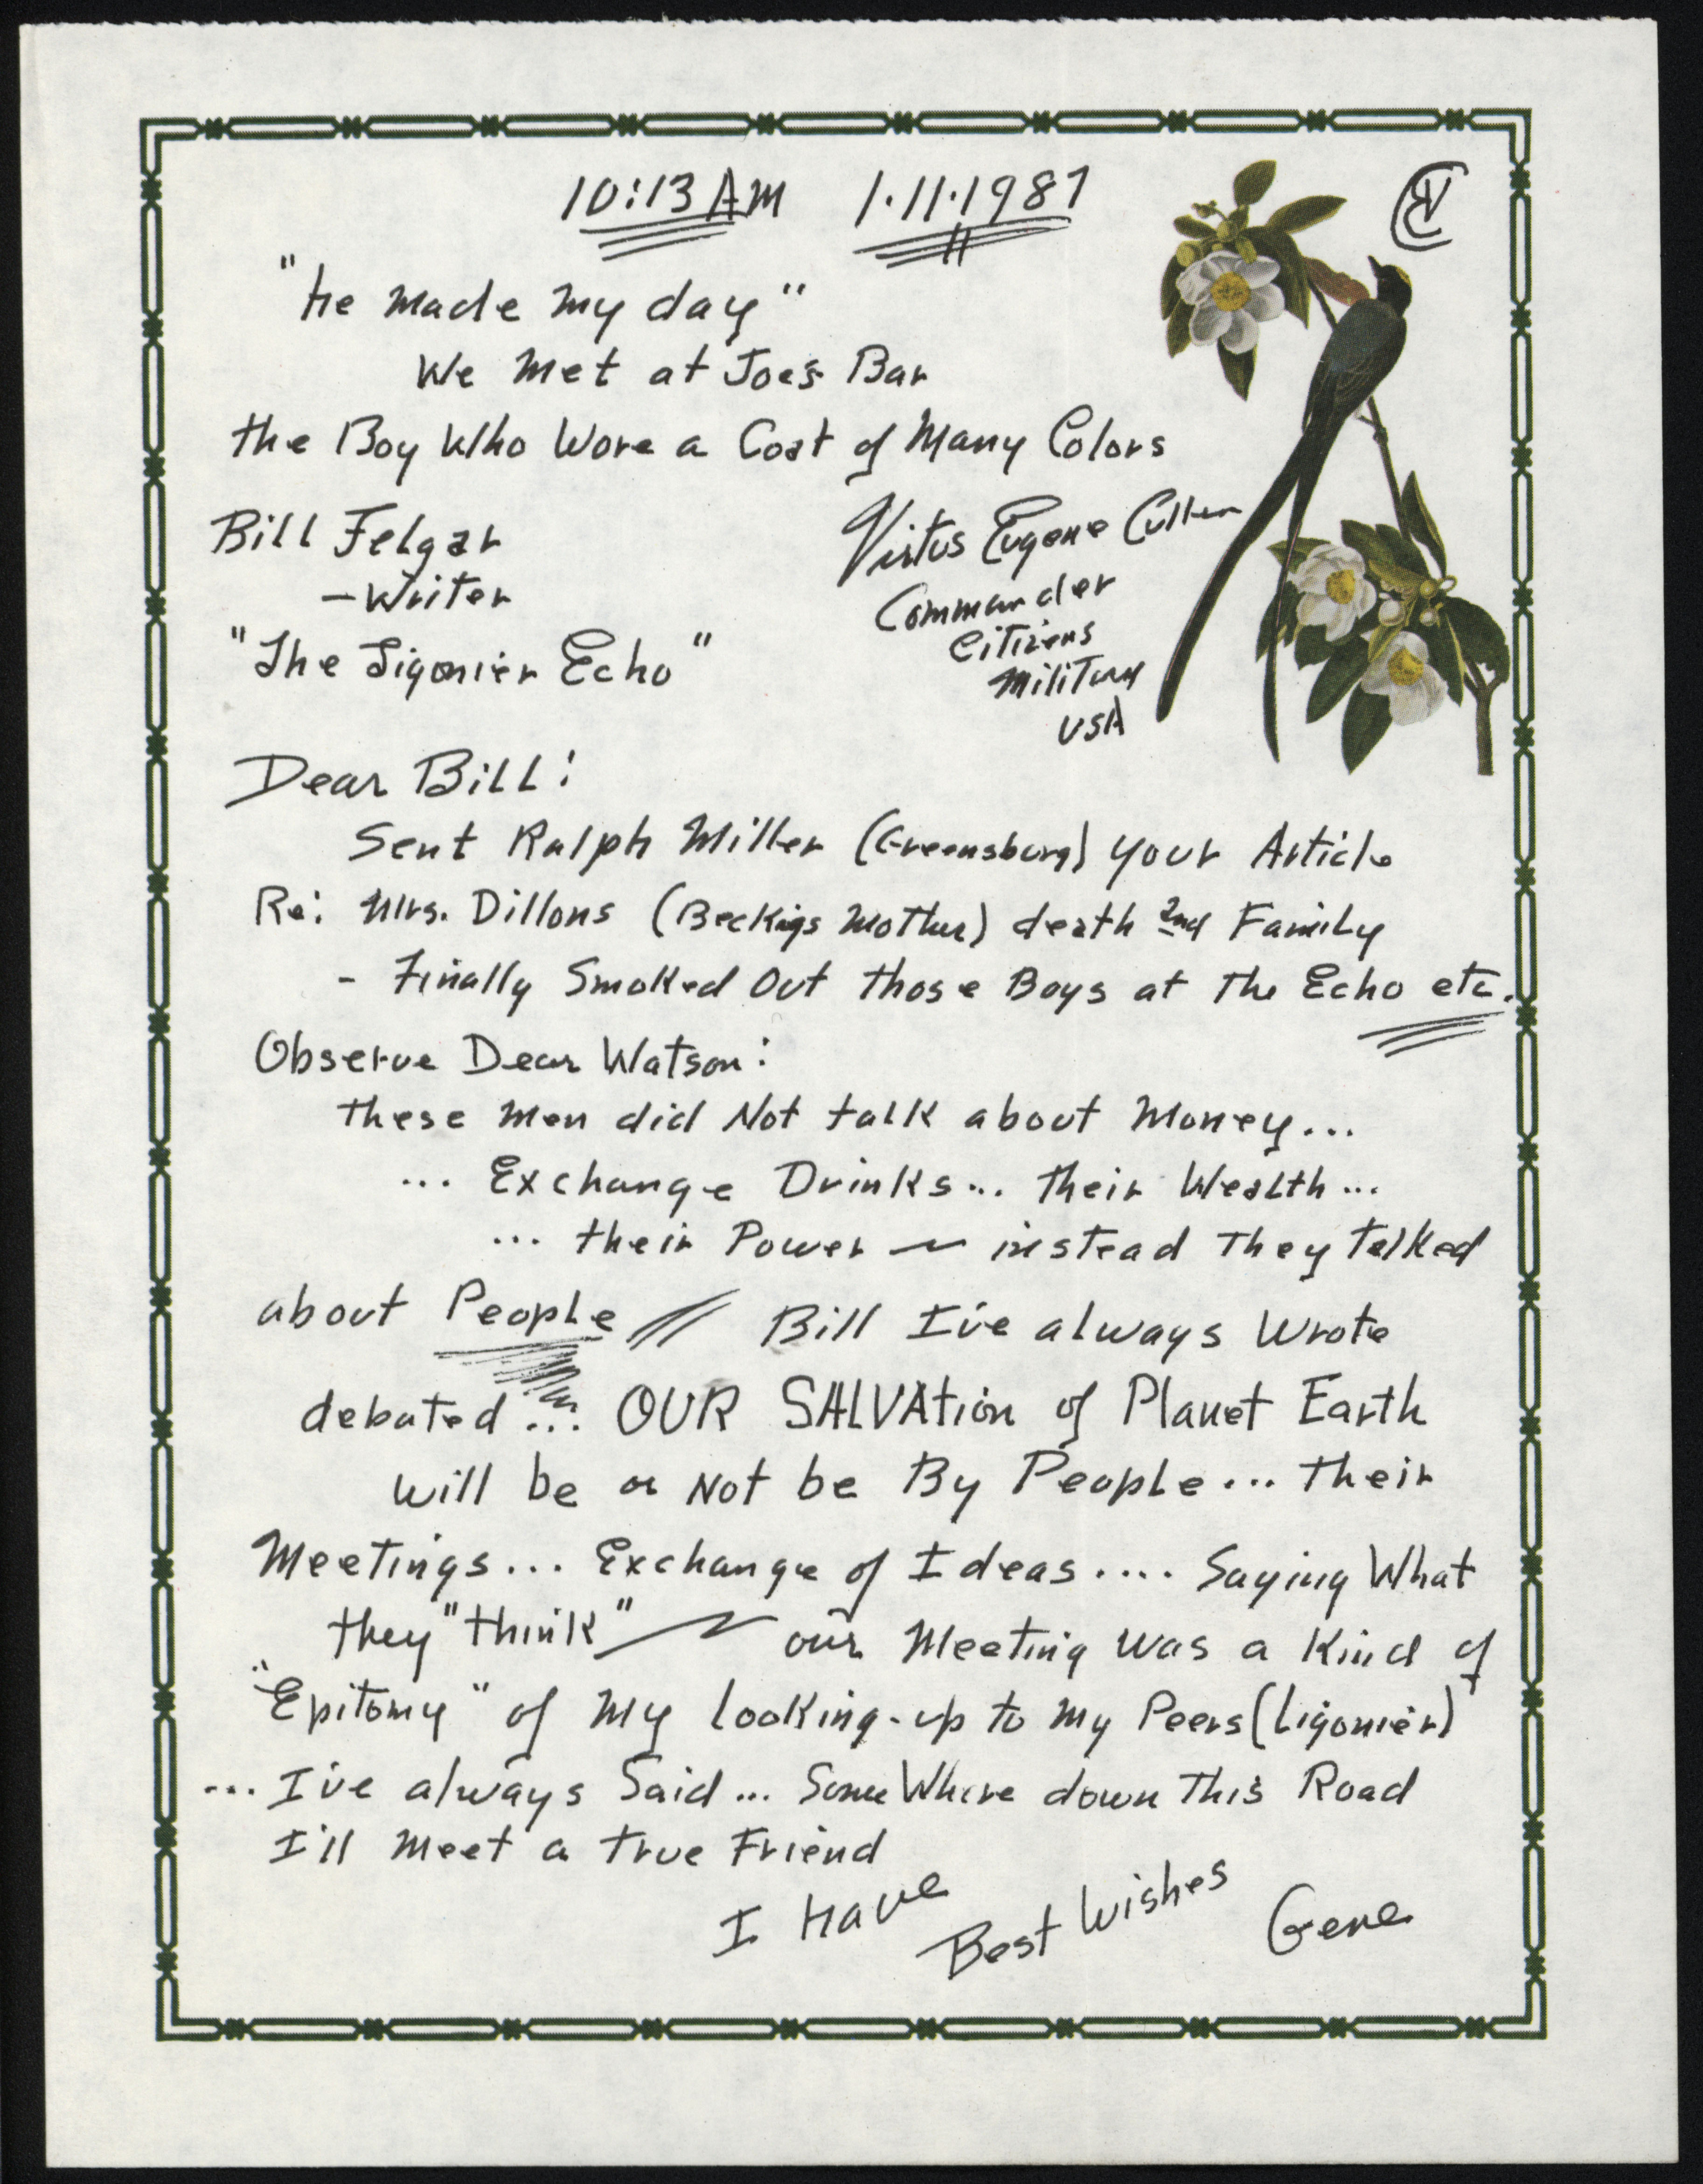 10:13 AM 1.11.1987
"He Made My day"
We Met at Joe's Bar
the Boy Who Wore a Coat of Many Colors
Bill Felgar
- Writer
"The Ligonier Echo"
Virtus Eugene Culler
Commander
Citizens
Military
USA
Dear Bill:
Sent Ralph Miller (Greensburg) your Article
Re: Mrs. Dillons (Beckigs Mother) death 2nd Family
- Finally Smoked Out those Boys at The Echo etc.
Observe Dear Watson:
These Men did Not talk about Money...
... Exchange Drinks... their Wealth...
... their Power - instead They talked
about People // Bill I've always Wrote
debated... OUR SALVAtion of Planet Earth
will be or Not be By People... Their
Meetings... Exchange of Ideas.... Saying What
they "think" - our Meeting Was a Kind of
"Epitomy" of My looking-up to My Peers (Ligonier)
... I've always Said... SomeWhere down This Road
I'll Meet a True Friend
I Have
Best Wishes Gene